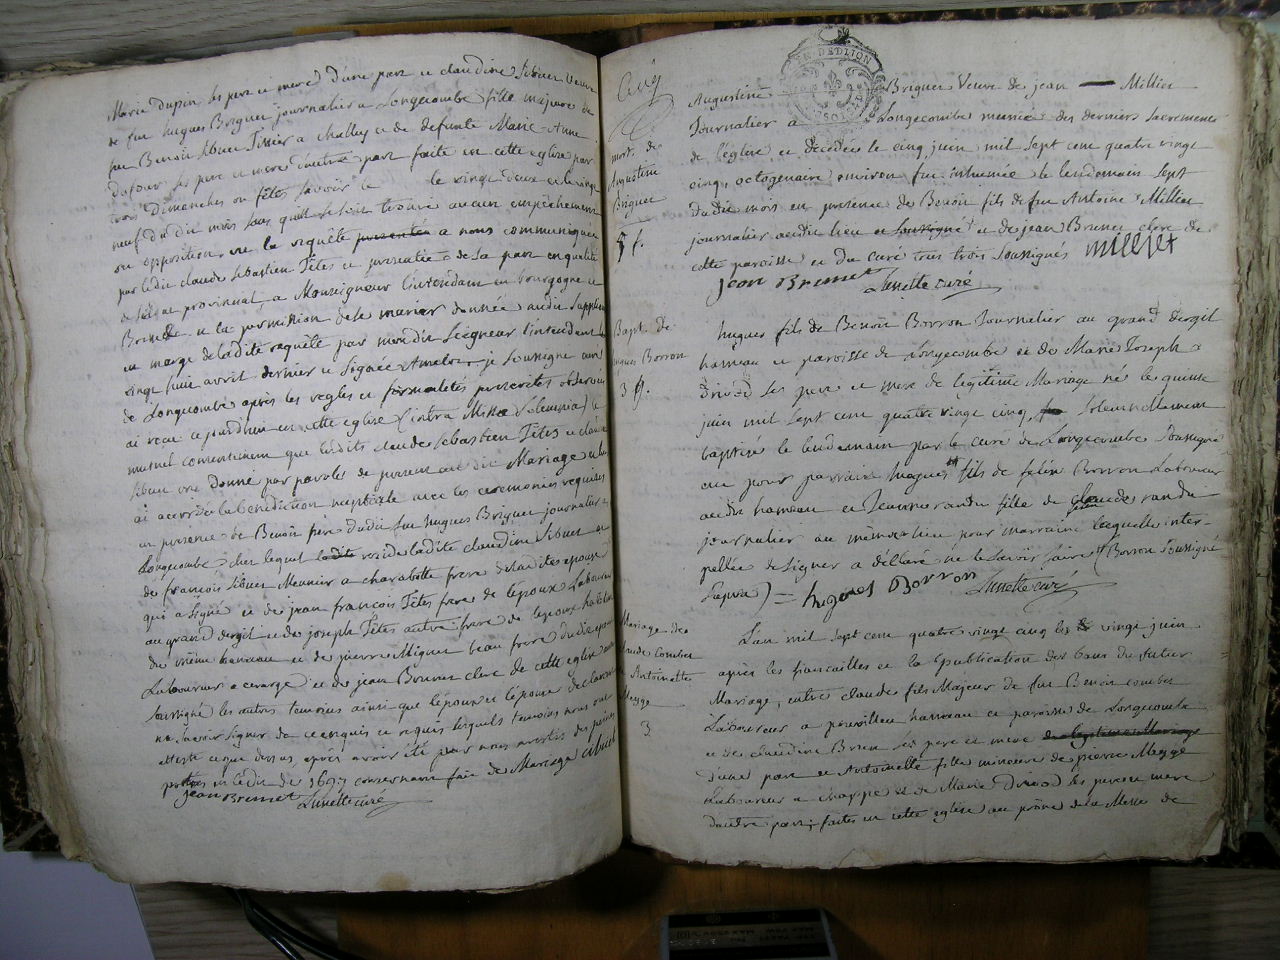 Marie Dupin ses pere et mere d'une part et claudine Sibuet veuve
de feu hugues Briguet journalier a Longecombe fille majeure de
feu Benoit Sibuet Tissier a Challey et de defunte Marie Anne
Dufour ses pere et mere d'autre part faite en cette eglise par
trois Dimanches ou fêtes savoir le le vingt deux et le vingt
neuf du dit mois sans qu'il se soit trouvé aucun empêchement
ou opposition, vu la requête presentée a nous communiquée
par ledit claude sebastien Têtes et presentée de sa part en qualité
de soldat provincial, a Monseigneur l'intendant en bourgogne
et la permission de se marier donnée audit suppliant
en marge de ladite requête par mondit Seigneur l'intendant
vingt huit avril dernier et signée Amelot, je soussigné curé
de Longecombe après les regles et formalités prescrites observées
ai reçu ce jourd'hui en cette eglise (intra Missæ Solemnia) le
mutuel consentement que lesdits claude sebastien Têtes et claudine
Sibuet ont donné par paroles de present au dit Mariage et leur
ai accordé la benediction nuptiale avec les ceremonies requises
en presence de Benoit frere dudit feu hugues Briguet journalier a
Longecombe chez lequel ladite reside ladite claudine Sibuet et
de françois Sibuet Meunier a charabotte frere de ladite epouse
qui a signé et de jean françois Têtes frere de l'époux Laboureur
au grand dergit et de joseph Têtes autre frere de l'epoux
du même hameau et de pierre Miguet beau frere dudit epoux
Laboureur a et de jean Brunet clerc de cette eglise
soussigné les autres temoins ainsi que l'époux et l'épouse declarent
ne savoir signer de ce enquis et requis lesquels temoins nous ont
attesté ce que dessus après avoir été par nous avertis des peines
portées en ledit de 1697 concernant fait de Mariage Sibuet
jean Brunet Lunette curé
Aug
EN DEDLION
Augustine Briguet Veuve de jean Millier
Journalier a Longecombe munie des derniers sacrements
de l'église et decedée le cinq juin mil sept cent quatre vingt
cinq, octogenaire environ fut inhumée le lendemain sept
dudit mois en presence de Benoit fils de feu Antoine Millier
journalier audit lieu et soussigné et de jean Brunet clerc de
cette paroisse et du Curé tous trois soussignés milliet
jean Brunet Lunette curé
mort de
Augustine
Briguet
Bapt. de
hugues Borron
3 f.
hugues fils de Benoit Borron Journalier au grand dergit
hameau et paroisse de Longecombe et de Marie Joseph
Drivod ses pere et mere de legitime Mariage né le quinze
juin mil sept cent quatre vingt cinq, fu solemnellement
baptisé le lendemain par le curé de Longecombe soussigné
eut pour parrain hugues fils de felix Borron Laboureur
audit hameau et Jeanne randu fille de claude randu
journalier au même lieu pour marraine laquelle inter-
pellée de signer a déclaré ne le savoir faire (Borron soussigné
approuvé) = hugues Borron Lunette curé
Mariage de
claude combet
Antoinette
Megge
3
L'an mil sept cent quatre vingt cinq le vingt juin
après les fiancailles et la publication des bans du futur
Mariage, entre claude fils Majeur de feu Benoit combet
Laboureur a hameau et paroisse de Longecombe
et de claudine Brun ses pere et mere de legitime Mariage
d'une part et Antoinette fille mineure de pierre Megge
Laboureur a chappe et de Marie Drivod ses pere et mere
d'autre part; faites en cette eglise au prône de la Messe de